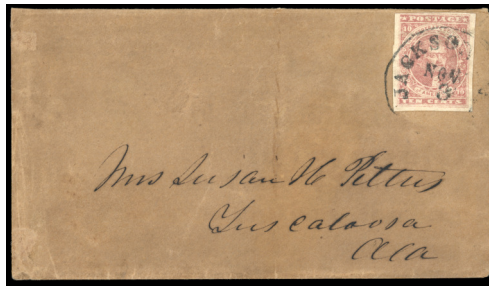 POSTAGE
JACKSO
NOV
3
TEN CENTS
Mrs Susan H Pettus
Tuscaloosa
Ala